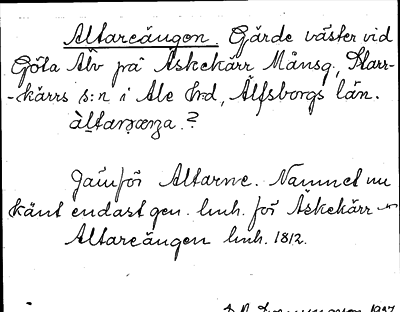 Altareängen. Gärde väster vid
Göta Älv på Äskekärr Månsg., Starr-
-kärrs s:n i Ale hrd, Älfsborgs län.
àltaræŋa.?
Jämför Altarne. Namnet nu
känt endast gen. lmh. för Äskekärr
Altareängen lmh. 1812.